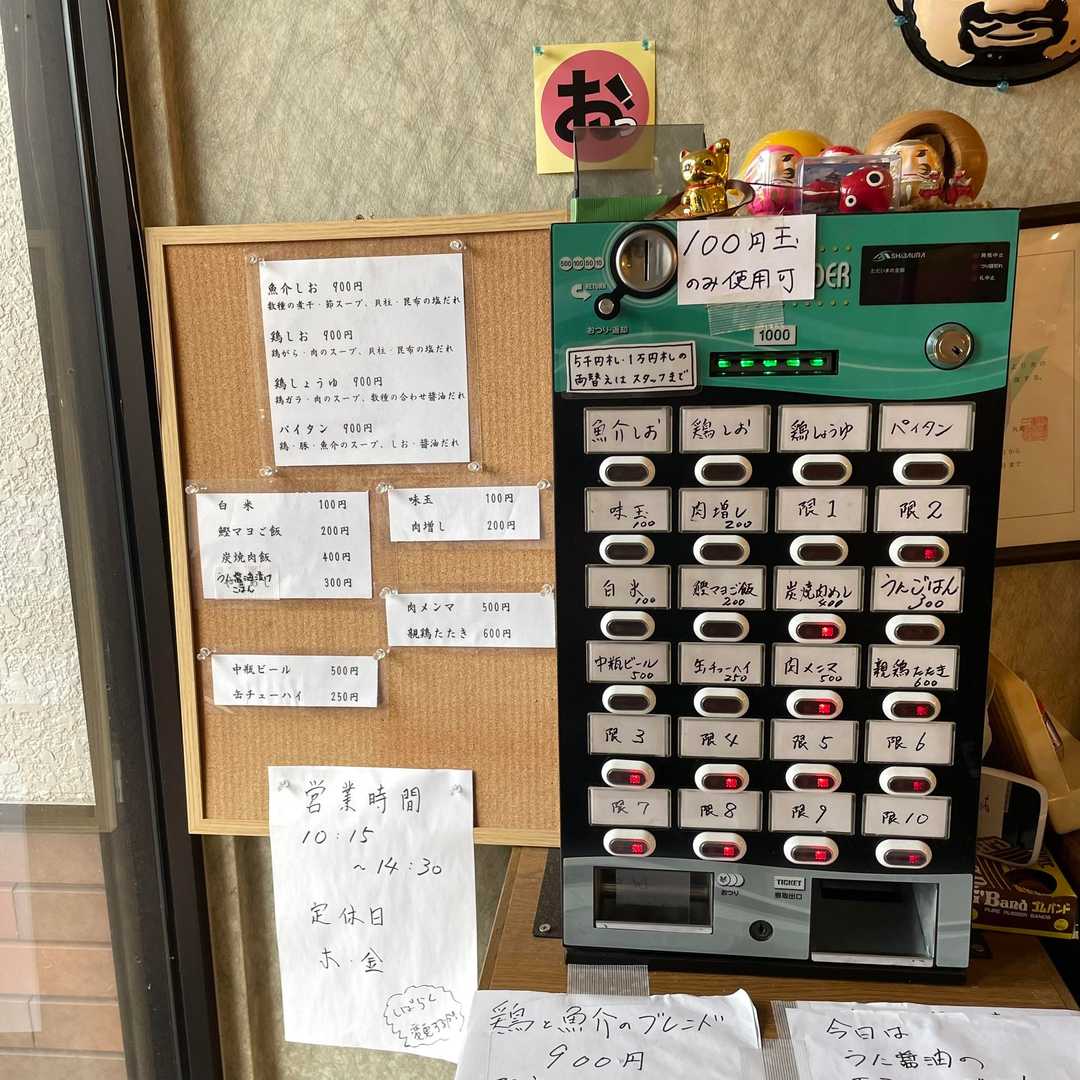 おっ
魚介しお 900円
数種の煮干・節スープ、貝柱・昆布の塩だれ
鶏しお 900円
鶏がら・肉のスープ、貝柱・昆布の塩だれ
鶏しょうゆ 900円
鶏ガラ・肉のスープ、数種の合わせ醤油だれ
パイタン 900円
鶏・豚・魚介のスープ、しお・醤油だれ
白米 100円
鰹マヨご飯 200円
炭焼肉飯 400円
うに醤油漬け
ごはん 300円
味玉 100円
肉増し 200円
肉メンマ 500円
親鶏たたき 600円
中瓶ビール 500円
缶チューハイ 250円
営業時間
10:15
~14:30
定休日
木・金
しばらく
500 100 50 10
RETURN
おつり・返却
100円玉
のみ使用可
DER
SHIBAURA
ただいまの金額
発売中止
つり銭切れ
札中止
1000
5千円札・1万円札の
両替えは スタッフまで
魚介しお
鶏しお
鶏しょうゆ
パイタン
味玉 100
肉増し 200
限1
限2
白米 100
鰹マヨご飯 200
炭焼肉めし 400
うにごはん 300
中瓶ビール 500
缶チューハイ 250
肉メンマ 500
親鶏たたき 600
限3
限4
限5
限6
限7
限8
限9
限10
おつり
TICKET
券取出口
Band ゴムバンド
PURE RUBBER BANDS
鶏と魚介のブレンド
900円
今日は
うに醤油の